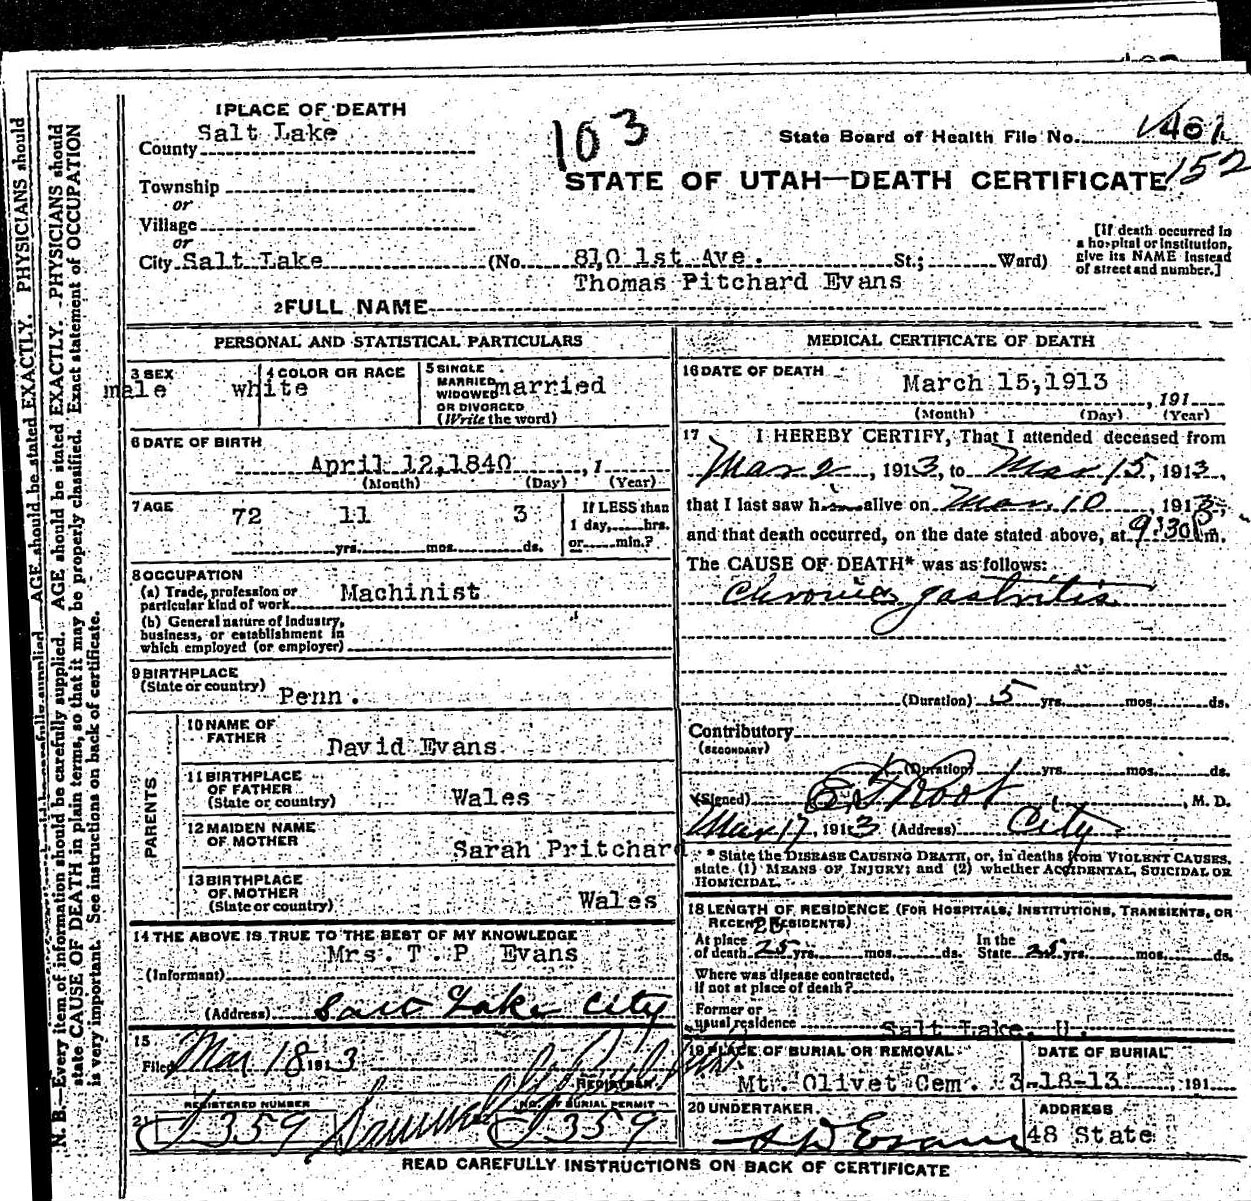 1 PLACE OF DEATH
County Salt Lake
103
State Board of Health File No.
152
STATE OF UTAH—DEATH CERTIFICATE
Township
or
Village
or
City Salt Lake (No. 810 1st Ave. St.; Ward)
[If death occurred in a hospital or institution, give its NAME instead of street and number.]
Thomas Pitchard Evans
2 FULL NAME
PERSONAL AND STATISTICAL PARTICULARS
3 SEX male
4 COLOR OR RACE white
5 SINGLE MARRIED WIDOWED OR DIVORCED (Write the word) married
6 DATE OF BIRTH
April 12,1840 , 1
(Month) (Day) (Year)
7 AGE
72 yrs. 11 mos. 3 ds.
If LESS than 1 day, hrs. or min.?
8 OCCUPATION
(a) Trade, profession or particular kind of work Machinist
(b) General nature of industry, business, or establishment in which employed (or employer)
9 BIRTHPLACE
(State or country) Penn.
PARENTS
10 NAME OF FATHER David Evans
11 BIRTHPLACE OF FATHER (State or country) Wales
12 MAIDEN NAME OF MOTHER Sarah Pritchard
13 BIRTHPLACE OF MOTHER (State or country) Wales
14 THE ABOVE IS TRUE TO THE BEST OF MY KNOWLEDGE
(Informant) Mrs. T. P Evans
(Address) Salt Lake City
15
Filed Mar 18 1913
REGISTRAR
REGISTERED NUMBER
NO. OF BURIAL PERMIT
21 359
359
MEDICAL CERTIFICATE OF DEATH
16 DATE OF DEATH
March 15,1913
, 191
(Month) (Day) (Year)
17 I HEREBY CERTIFY, That I attended deceased from
Mar 2, 1913, to Mar 15, 1913,
that I last saw him alive on Mar. 10, 1913,
and that death occurred, on the date stated above, at 9:30 P m.
The CAUSE OF DEATH* was as follows:
Chronic gastritis
(Duration) 5 yrs. mos. ds.
Contributory
(SECONDARY)
(Duration) yrs. mos. ds.
(Signed) Root , M. D.
Mar 17, 1913 (Address) City
* State the DISEASE CAUSING DEATH, or, in deaths from VIOLENT CAUSES, state (1) MEANS OF INJURY; and (2) whether ACCIDENTAL, SUICIDAL OR HOMICIDAL.
18 LENGTH OF RESIDENCE (FOR HOSPITALS, INSTITUTIONS, TRANSIENTS, OR RECENT RESIDENTS)
At place of death 25 yrs. mos. ds. In the State 25 yrs. mos. ds.
Where was disease contracted, if not at place of death?
Former or usual residence Salt Lake, U.
19 PLACE OF BURIAL OR REMOVAL DATE OF BURIAL
Mt. Olivet Cem. 3-18-13 , 191
20 UNDERTAKER ADDRESS
Evans 48 State
READ CAREFULLY INSTRUCTIONS ON BACK OF CERTIFICATE
N. B.—Every item of information should be carefully supplied. AGE should be stated EXACTLY. PHYSICIANS should
state CAUSE OF DEATH in plain terms, so that it may be properly classified. Exact statement of OCCUPATION
is very important. See instructions on back of certificate.
AGE should be stated EXACTLY. PHYSICIANS should